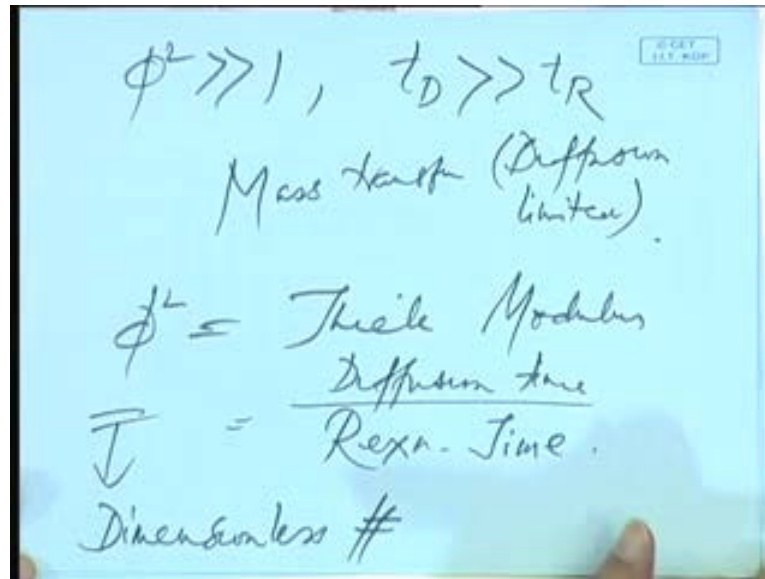 φ² >> 1, t_D >> t_R
© CET
I.I.T. KGP
Mass transfer (Diffusion
limited).
φ² = Thiele Modulus
= Diffusion time
Rexn. Time.
Dimensionless #